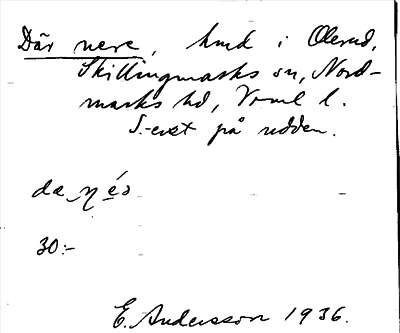 Där nere, hmd i Olerud,
Skillingmarks sn, Nord-
marks hd, Vrml l.
S.-evst på udden.
30:-
E. Andersson 1936.